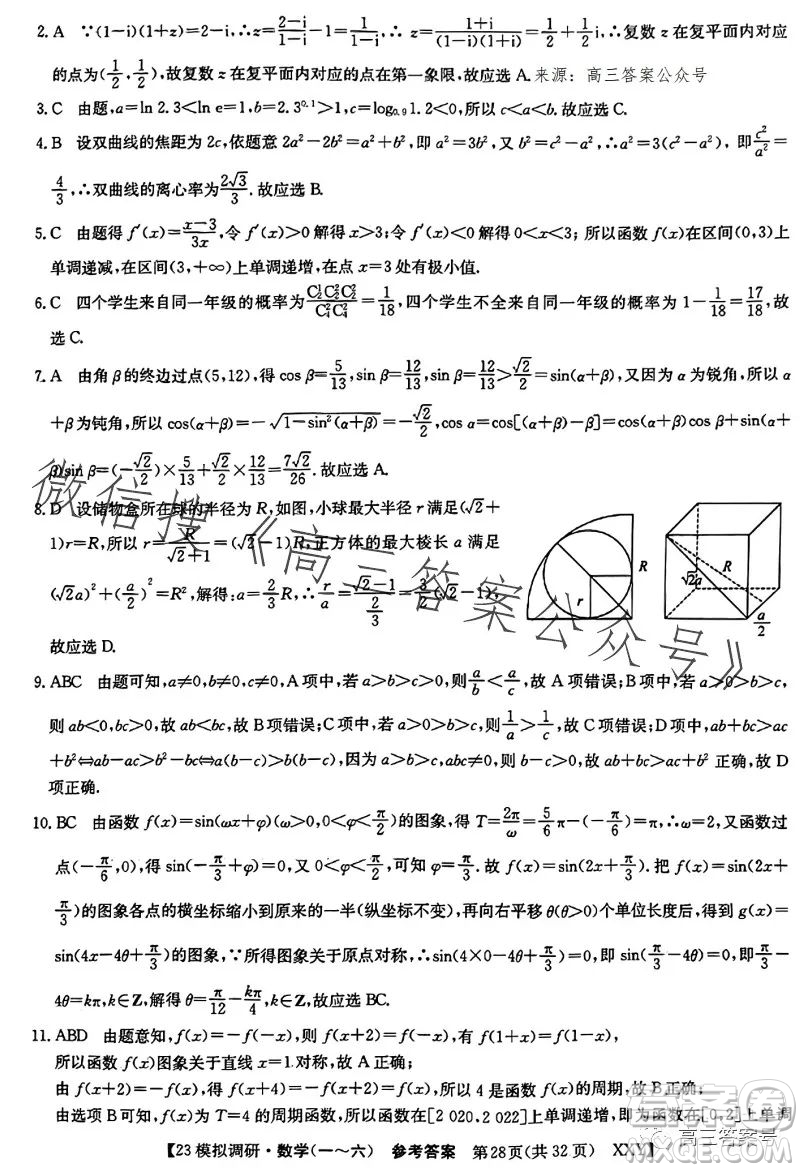 2. A　∵(1-i)(1+z)=2-i,∴z=\frac{2-i}{1-i}-1=\frac{1}{1-i},∴z=\frac{1+i}{(1-i)(1+i)}=\frac{1}{2}+\frac{1}{2}i,∴复数z在复平面内对应
的点为(\frac{1}{2},\frac{1}{2}),故复数z在复平面内对应的点在第一象限,故应选A.来源：高三答案公众号
3. C　由题,a=ln 2.3<ln e=1,b=2.3^{0.1}>1,c=log_{0.9}1.2<0,所以c<a<b.故应选C.
4. B　设双曲线的焦距为2c,依题意2a²-2b²=a²+b²,即a²=3b²,又b²=c²-a²,∴a²=3(c²-a²),即\frac{c²}{a²}=
\frac{4}{3},∴双曲线的离心率为\frac{2\sqrt{3}}{3}.故应选B.
5. C　由题得f′(x)=\frac{x-3}{3x},令f′(x)>0解得x>3;令f′(x)<0解得0<x<3;所以函数f(x)在区间(0,3)上
单调递减,在区间(3,+∞)上单调递增,在点x=3处有极小值.
6. C　四个学生来自同一年级的概率为\frac{C_2^1C_2^2C_2^2}{C_4^1C_4^2}=\frac{1}{18},四个学生不全来自同一年级的概率为1-\frac{1}{18}=\frac{17}{18},故
选C.
7. A　由角β的终边过点(5,12),得cos β=\frac{5}{13},sin β=\frac{12}{13},sin β=\frac{12}{13}>\frac{\sqrt{2}}{2}=sin(α+β),又因为α为锐角,所以α
+β为钝角,所以cos(α+β)=-\sqrt{1-sin²(α+β)}=-\frac{\sqrt{2}}{2},cos α=cos[(α+β)-β]=cos(α+β)cos β+sin(α+
β)sin β=(-\frac{\sqrt{2}}{2})×\frac{5}{13}+\frac{\sqrt{2}}{2}×\frac{12}{13}=\frac{7\sqrt{2}}{26}.故应选A.
8. D　设储物盒所在球的半径为R,如图,小球最大半径r满足(\sqrt{2}+
1)r=R,所以r=\frac{R}{\sqrt{2}+1}=(\sqrt{2}-1)R,正方体的最大棱长a满足
(\sqrt{2}a)²+(\frac{a}{2})²=R²,解得:a=\frac{2}{3}R,∴\frac{r}{a}=\frac{\sqrt{2}-1}{\frac{2}{3}}=\frac{3}{2}(\sqrt{2}-1),
故应选D.
R
r
R
\sqrt{2}a
\frac{a}{2}
9. ABC　由题可知,a≠0,b≠0,c≠0,A项中,若a>b>c,则\frac{a}{b}<\frac{a}{c},故A项错误;B项中,若a>0>b>c,
则ab<0,bc>0,故ab<bc,故B项错误;C项中,若a>0>b>c,则\frac{1}{a}>\frac{1}{c},故C项错误;D项中,ab+bc>ac
+b²⇔ab-ac>b²-bc⇔a(b-c)>b(b-c),因为a>b>c,abc≠0,所以b-c>0,故ab+bc>ac+b²,故D
项正确.
10. BC　由函数f(x)=sin(ωx+φ)(ω>0,0<φ<\frac{π}{2})的图象,得T=\frac{2π}{ω}=\frac{5}{6}π-(-\frac{π}{6})=π,∴ω=2,又函数过
点(-\frac{π}{6},0),得sin(-\frac{π}{3}+φ)=0,又0<φ<\frac{π}{2},可知φ=\frac{π}{3}.故f(x)=sin(2x+\frac{π}{3}).把f(x)=sin(2x+
\frac{π}{3})的图象各点的横坐标缩小到原来的一半(纵坐标不变),再向右平移θ(θ>0)个单位长度后,得到g(x)=
sin(4x-4θ+\frac{π}{3})的图象,∵所得图象关于原点对称,∴sin(4×0-4θ+\frac{π}{3})=0,即sin(\frac{π}{3}-4θ)=0,即\frac{π}{3}-
4θ=kπ,k∈Z,解得θ=\frac{π}{12}-\frac{kπ}{4},k∈Z,故应选BC.
11. ABD　由题意知,f(x)=-f(-x),则f(x+2)=f(-x),有f(1+x)=f(1-x),
所以函数f(x)图象关于直线x=1对称,故A正确;
由f(x+2)=-f(x),得f(x+4)=-f(x+2)=f(x),所以4是f(x)的周期,故B正确;
由选项B可知,f(x)为T=4的周期函数,所以函数在[2 020,2 022]上单调递增,等价于函数在[0,2]上单调
【23模拟调研·数学(一～六)　参考答案　第28页(共32页)　XXY】
微信搜《高三答案公众号》
高三答案号